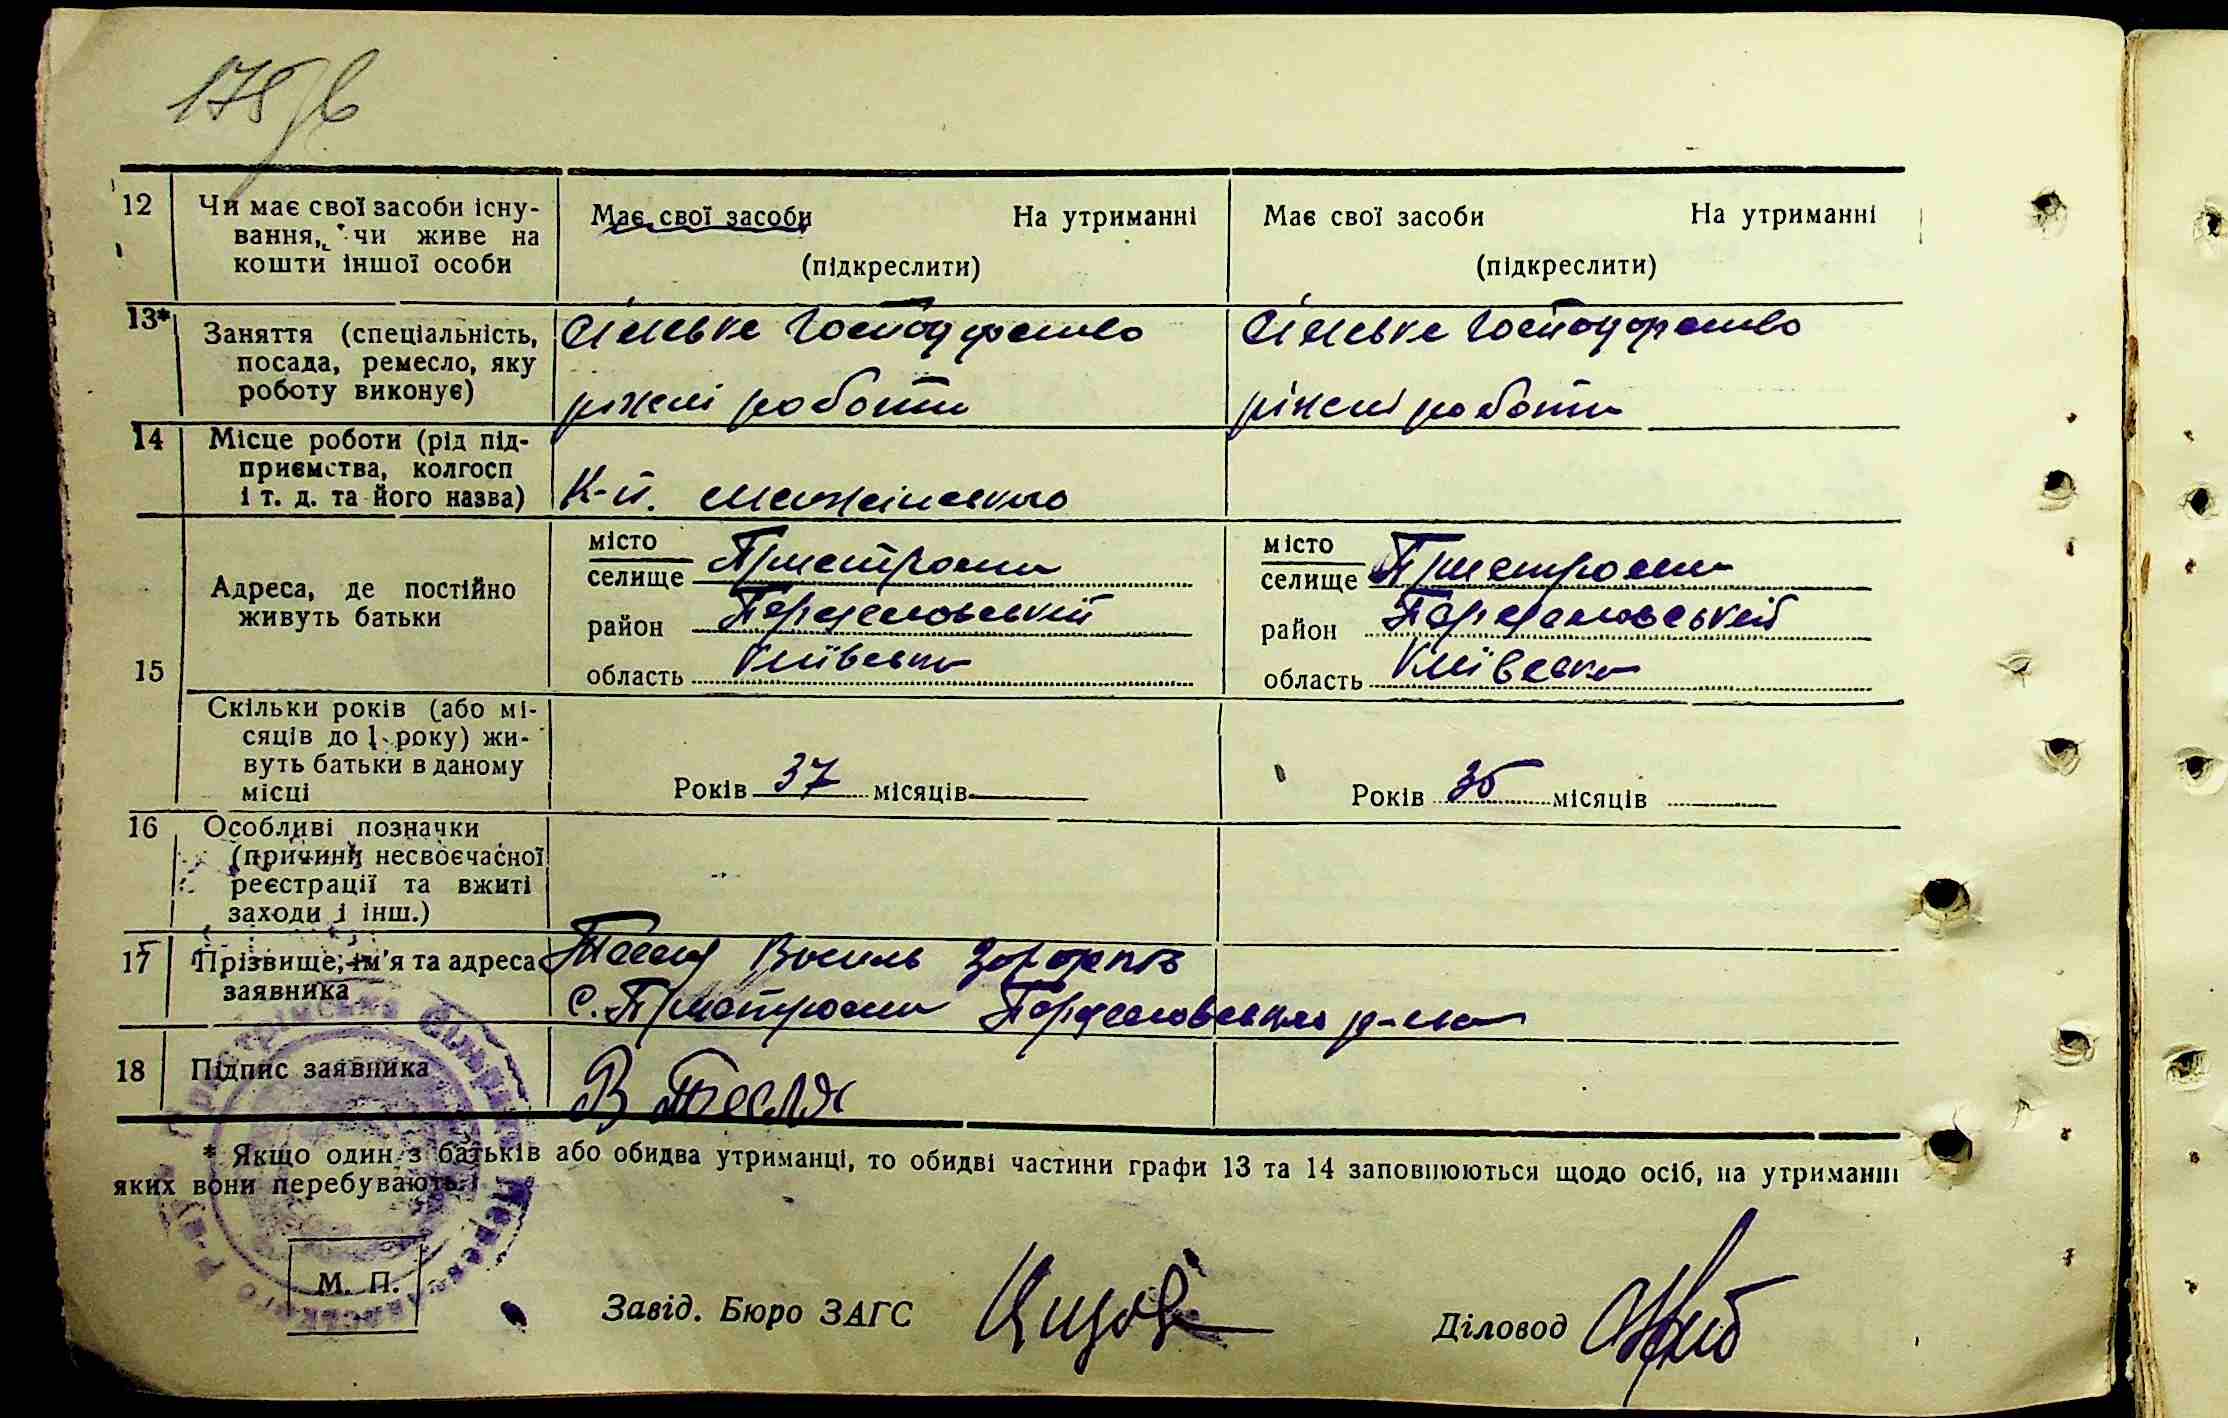 175зв
12 Чи має свої засоби існу-
вання, чи живе на
кошти іншої особи
Має свої засоби На утриманні
(підкреслити)
Має свої засоби На утриманні
(підкреслити)
13* Заняття (спеціальність,
посада, ремесло, яку
роботу виконує)
Сільське господарство
ріжні роботи
Сільське господарство
ріжні роботи
14 Місце роботи (рід під-
приємства, колгосп
і т. д. та його назва)
К-п. менжінського
15 Адреса, де постійно
живуть батьки
місто
селище Пристроми
район Переяславський
область Київська
місто
селище Пристроми
район Переяславський
область Київська
Скільки років (або мі-
сяців до 1 року) жи-
вуть батьки в даному
місці
Років 37 місяців
Років 35 місяців
16 Особливі позначки
(причини несвоєчасної
реєстрації та вжиті
заходи і інш.)
17 Прізвище, ім'я та адреса
заявника
Тесля Василь
с. Пристроми Переяславського р-на
18 Підпис заявника
В Тесля
* Якщо один з батьків або обидва утриманці, то обидві частини графи 13 та 14 заповнюються щодо осіб, на утриманні
яких вони перебувають.
М. П.
Завід. Бюро ЗАГС
Діловод